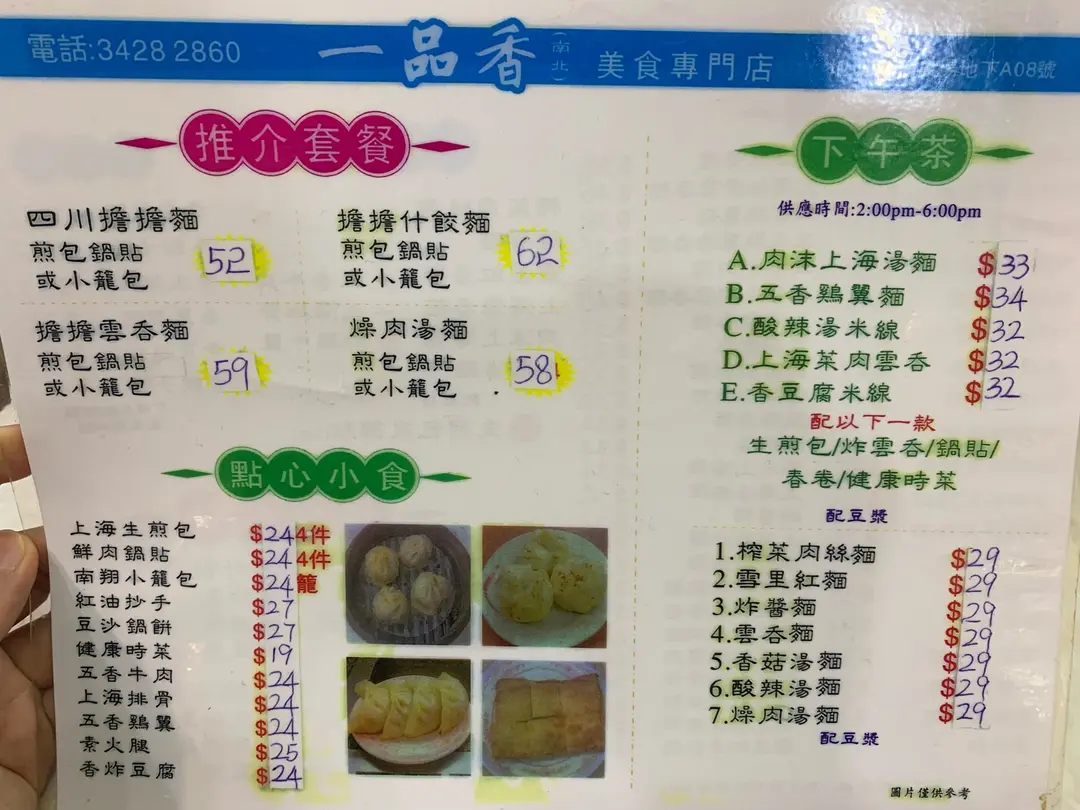 電話:3428 2860
一品香(南北)美食專門店
地下A08號
推介套餐
四川擔擔麵
煎包鍋貼
或小籠包
52
擔擔什餃麵
煎包鍋貼
或小籠包
62
擔擔雲吞麵
煎包鍋貼
或小籠包
59
燥肉湯麵
煎包鍋貼
或小籠包
58
點心小食
上海生煎包 $24 4件
鮮肉鍋貼 $24 4件
南翔小籠包 $24 籠
紅油抄手 $27
豆沙鍋餅 $27
健康時菜 $19
五香牛肉 $24
上海排骨 $24
五香鷄翼 $24
素火腿 $25
香炸豆腐 $24
下午茶
供應時間:2:00pm-6:00pm
A.肉沫上海湯麵 $33
B.五香鷄翼麵 $34
C.酸辣湯米線 $32
D.上海菜肉雲吞 $32
E.香豆腐米線 $32
配以下一款
生煎包/炸雲吞/鍋貼/
春卷/健康時菜
配豆漿
1.榨菜肉絲麵 $29
2.雪里紅麵 $29
3.炸醬麵 $29
4.雲吞麵 $29
5.香菇湯麵 $29
6.酸辣湯麵 $29
7.燥肉湯麵 $29
配豆漿
圖片僅供參考